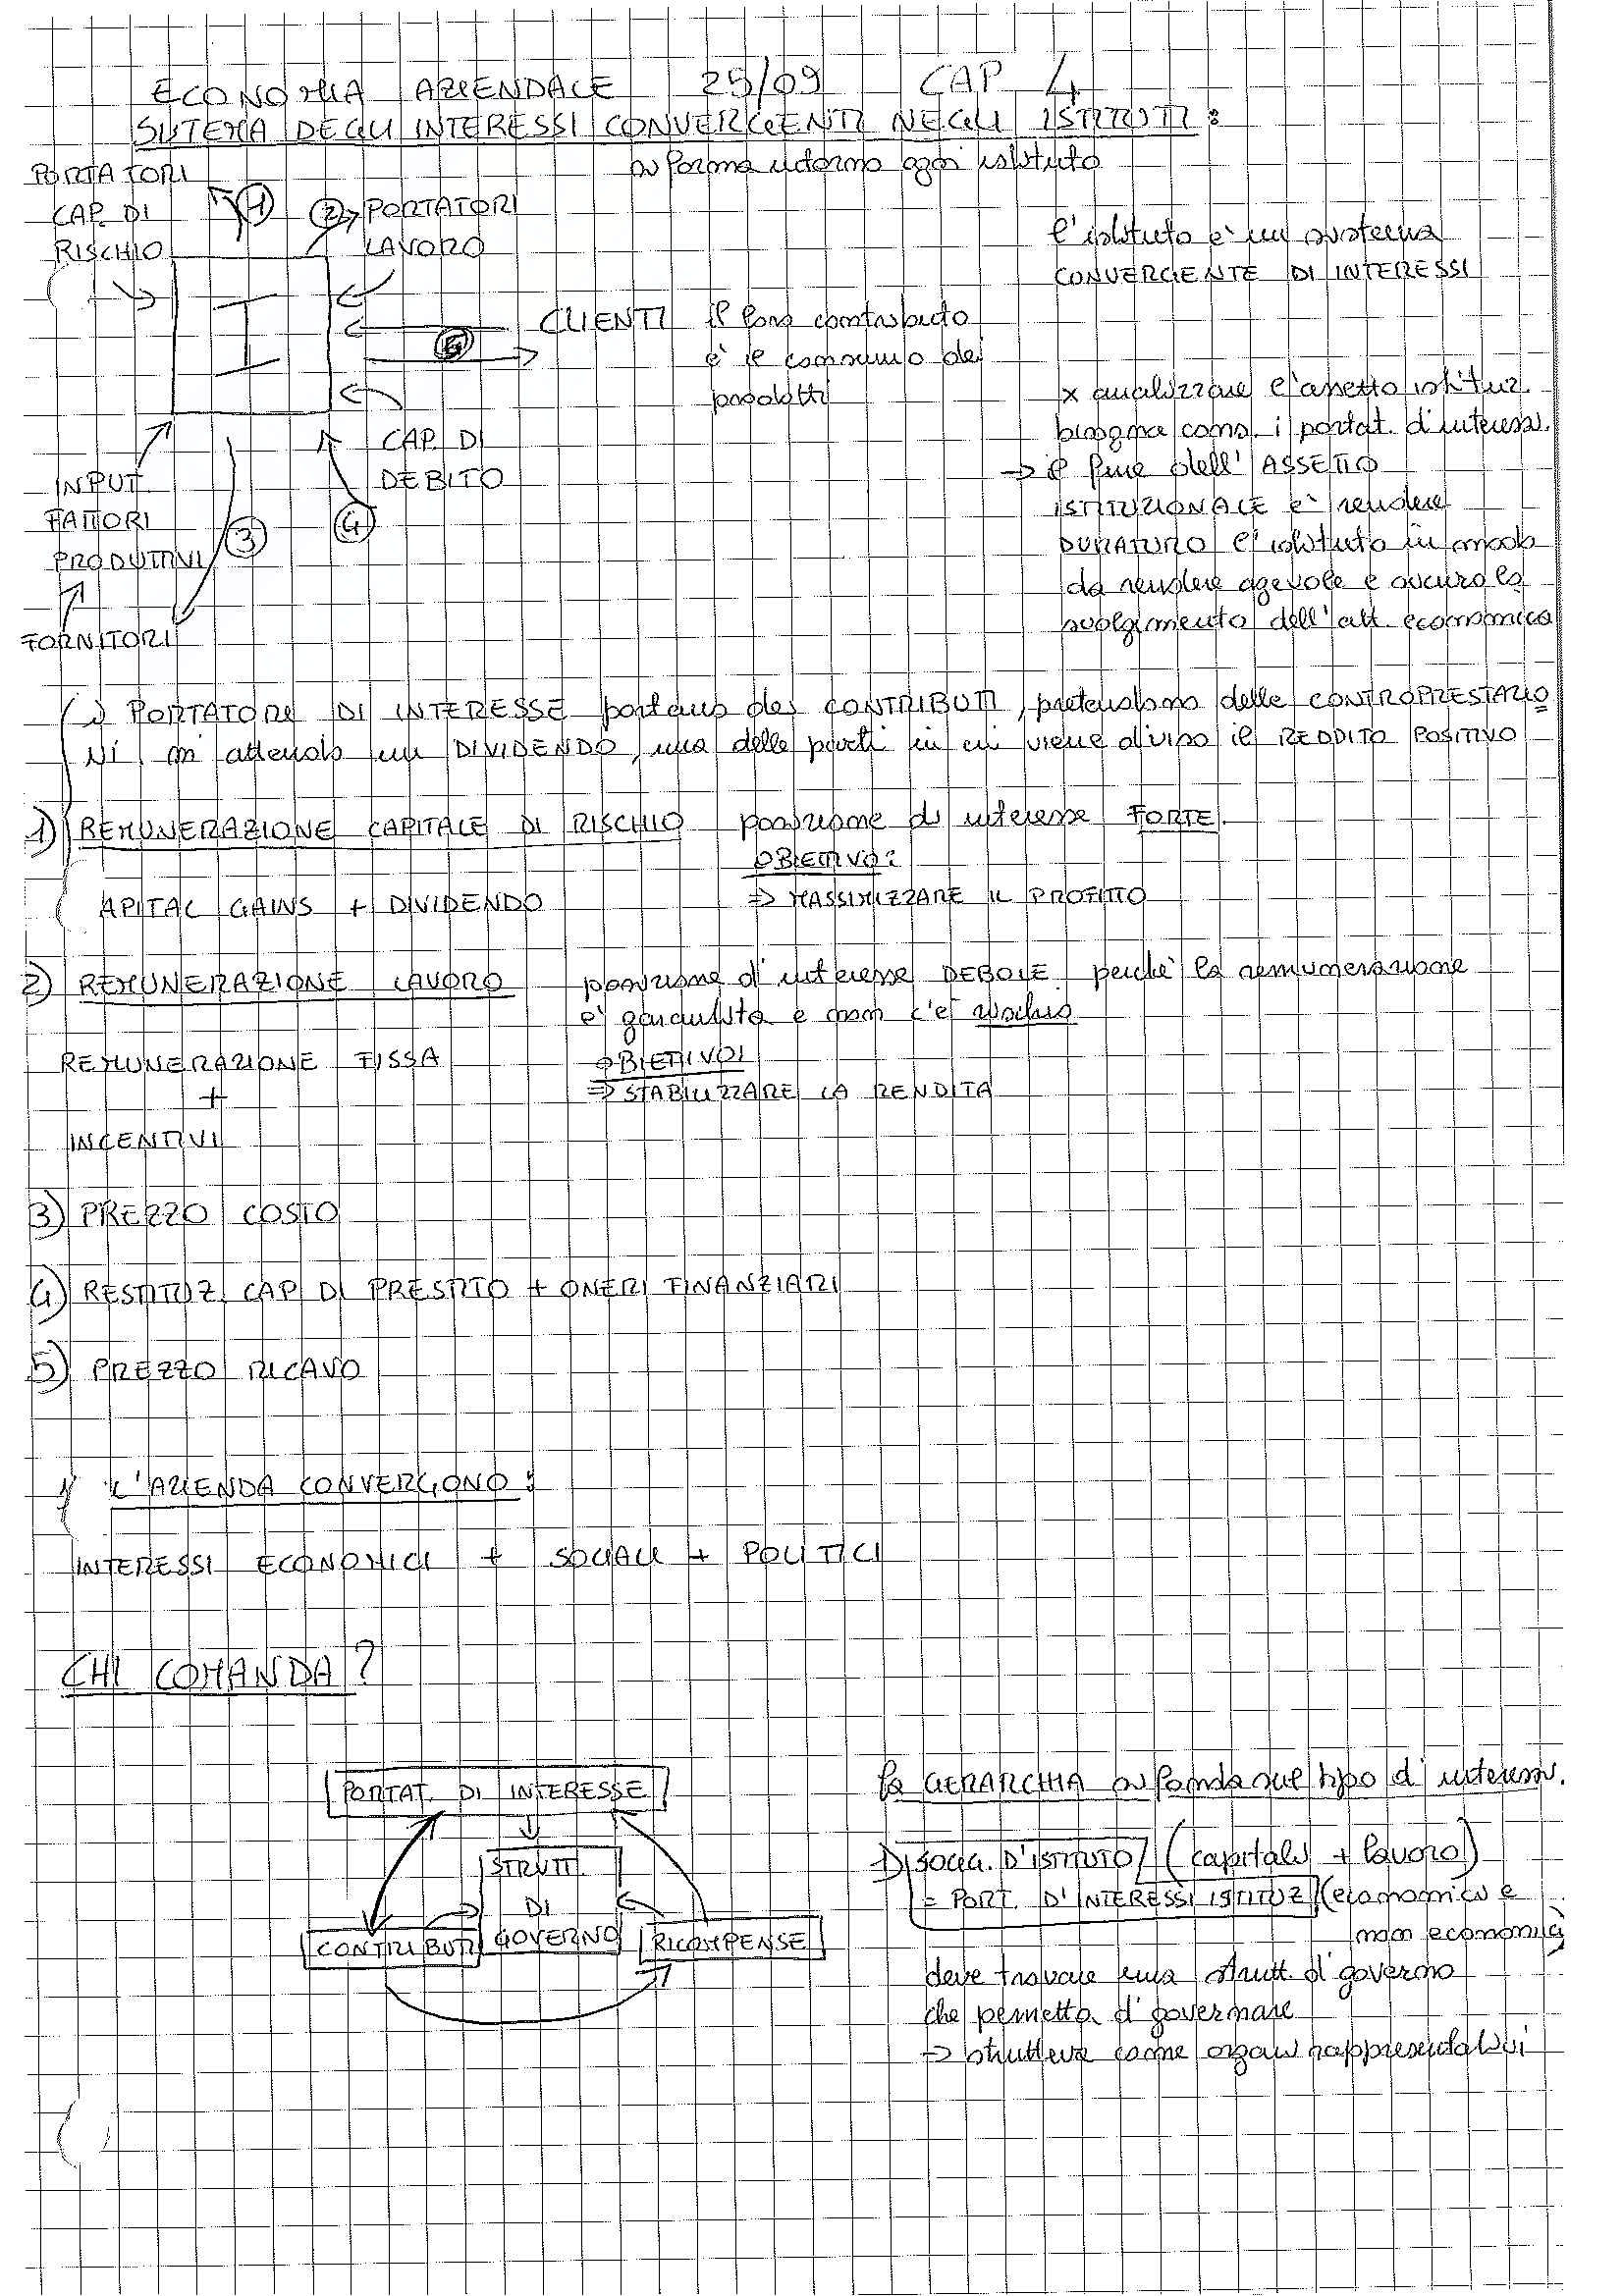 ECONOMIA AZIENDALE 25/09 CAP 4
SISTEMA DEGLI INTERESSI CONVERGENTI NEGLI ISTITUTI:
si forma intorno ogni istituto
PORTATORI
CAP. DI
RISCHIO
1
2
PORTATORI
LAVORO
I
CLIENTI il loro contributo
è il consumo dei
prodotti
5
CAP. DI
DEBITO
INPUT
FATTORI
PRODUTTIVI
3
4
FORNITORI
l'istituto è un sistema
CONVERGENTE DI INTERESSI
x analizzare l'assetto istituz.
bisogna cons. i portat. d'interessi.
→ il fine dell'ASSETTO
ISTITUZIONALE è rendere
DURATURO l'istituto in modo
da rendere agevole e sicuro lo
svolgimento dell'att. economica
i PORTATORI DI INTERESSE portano dei CONTRIBUTI, pretendono delle CONTROPRESTAZIO=
NI, si attendo un DIVIDENDO, una delle parti in cui viene diviso il REDDITO POSITIVO
1) REMUNERAZIONE CAPITALE DI RISCHIO posizione di interesse FORTE.
OBIETTIVO:
⇒ MASSIMIZZARE IL PROFITTO
APITAL GAINS + DIVIDENDO
2) REMUNERAZIONE LAVORO posizione d'interesse DEBOLE perchè la remunerazione
è garantita e non c'è rischio
REMUNERAZIONE FISSA
+
INCENTIVI
OBIETTIVO:
⇒ STABILIZZARE LA RENDITA
3) PREZZO COSTO
4) RESTITUZ. CAP. DI PRESTITO + ONERI FINANZIARI
5) PREZZO RICAVO
L'AZIENDA CONVERGONO:
INTERESSI ECONOMICI + SOCIALI + POLITICI
CHI COMANDA?
PORTAT. DI INTERESSE
STRUTT.
DI
GOVERNO
CONTRIBUTI
RICOMPENSE
la GERARCHIA si fonda sul tipo d'interessi.
1) SOGG. D'ISTITUTO (capitale + lavoro)
= PORT. D'INTERESSI ISTITUZ. (economici e
non economici)
deve trovare una strutt. d'governo
che permetta d'governare
→ struttura come organi rappresentativi